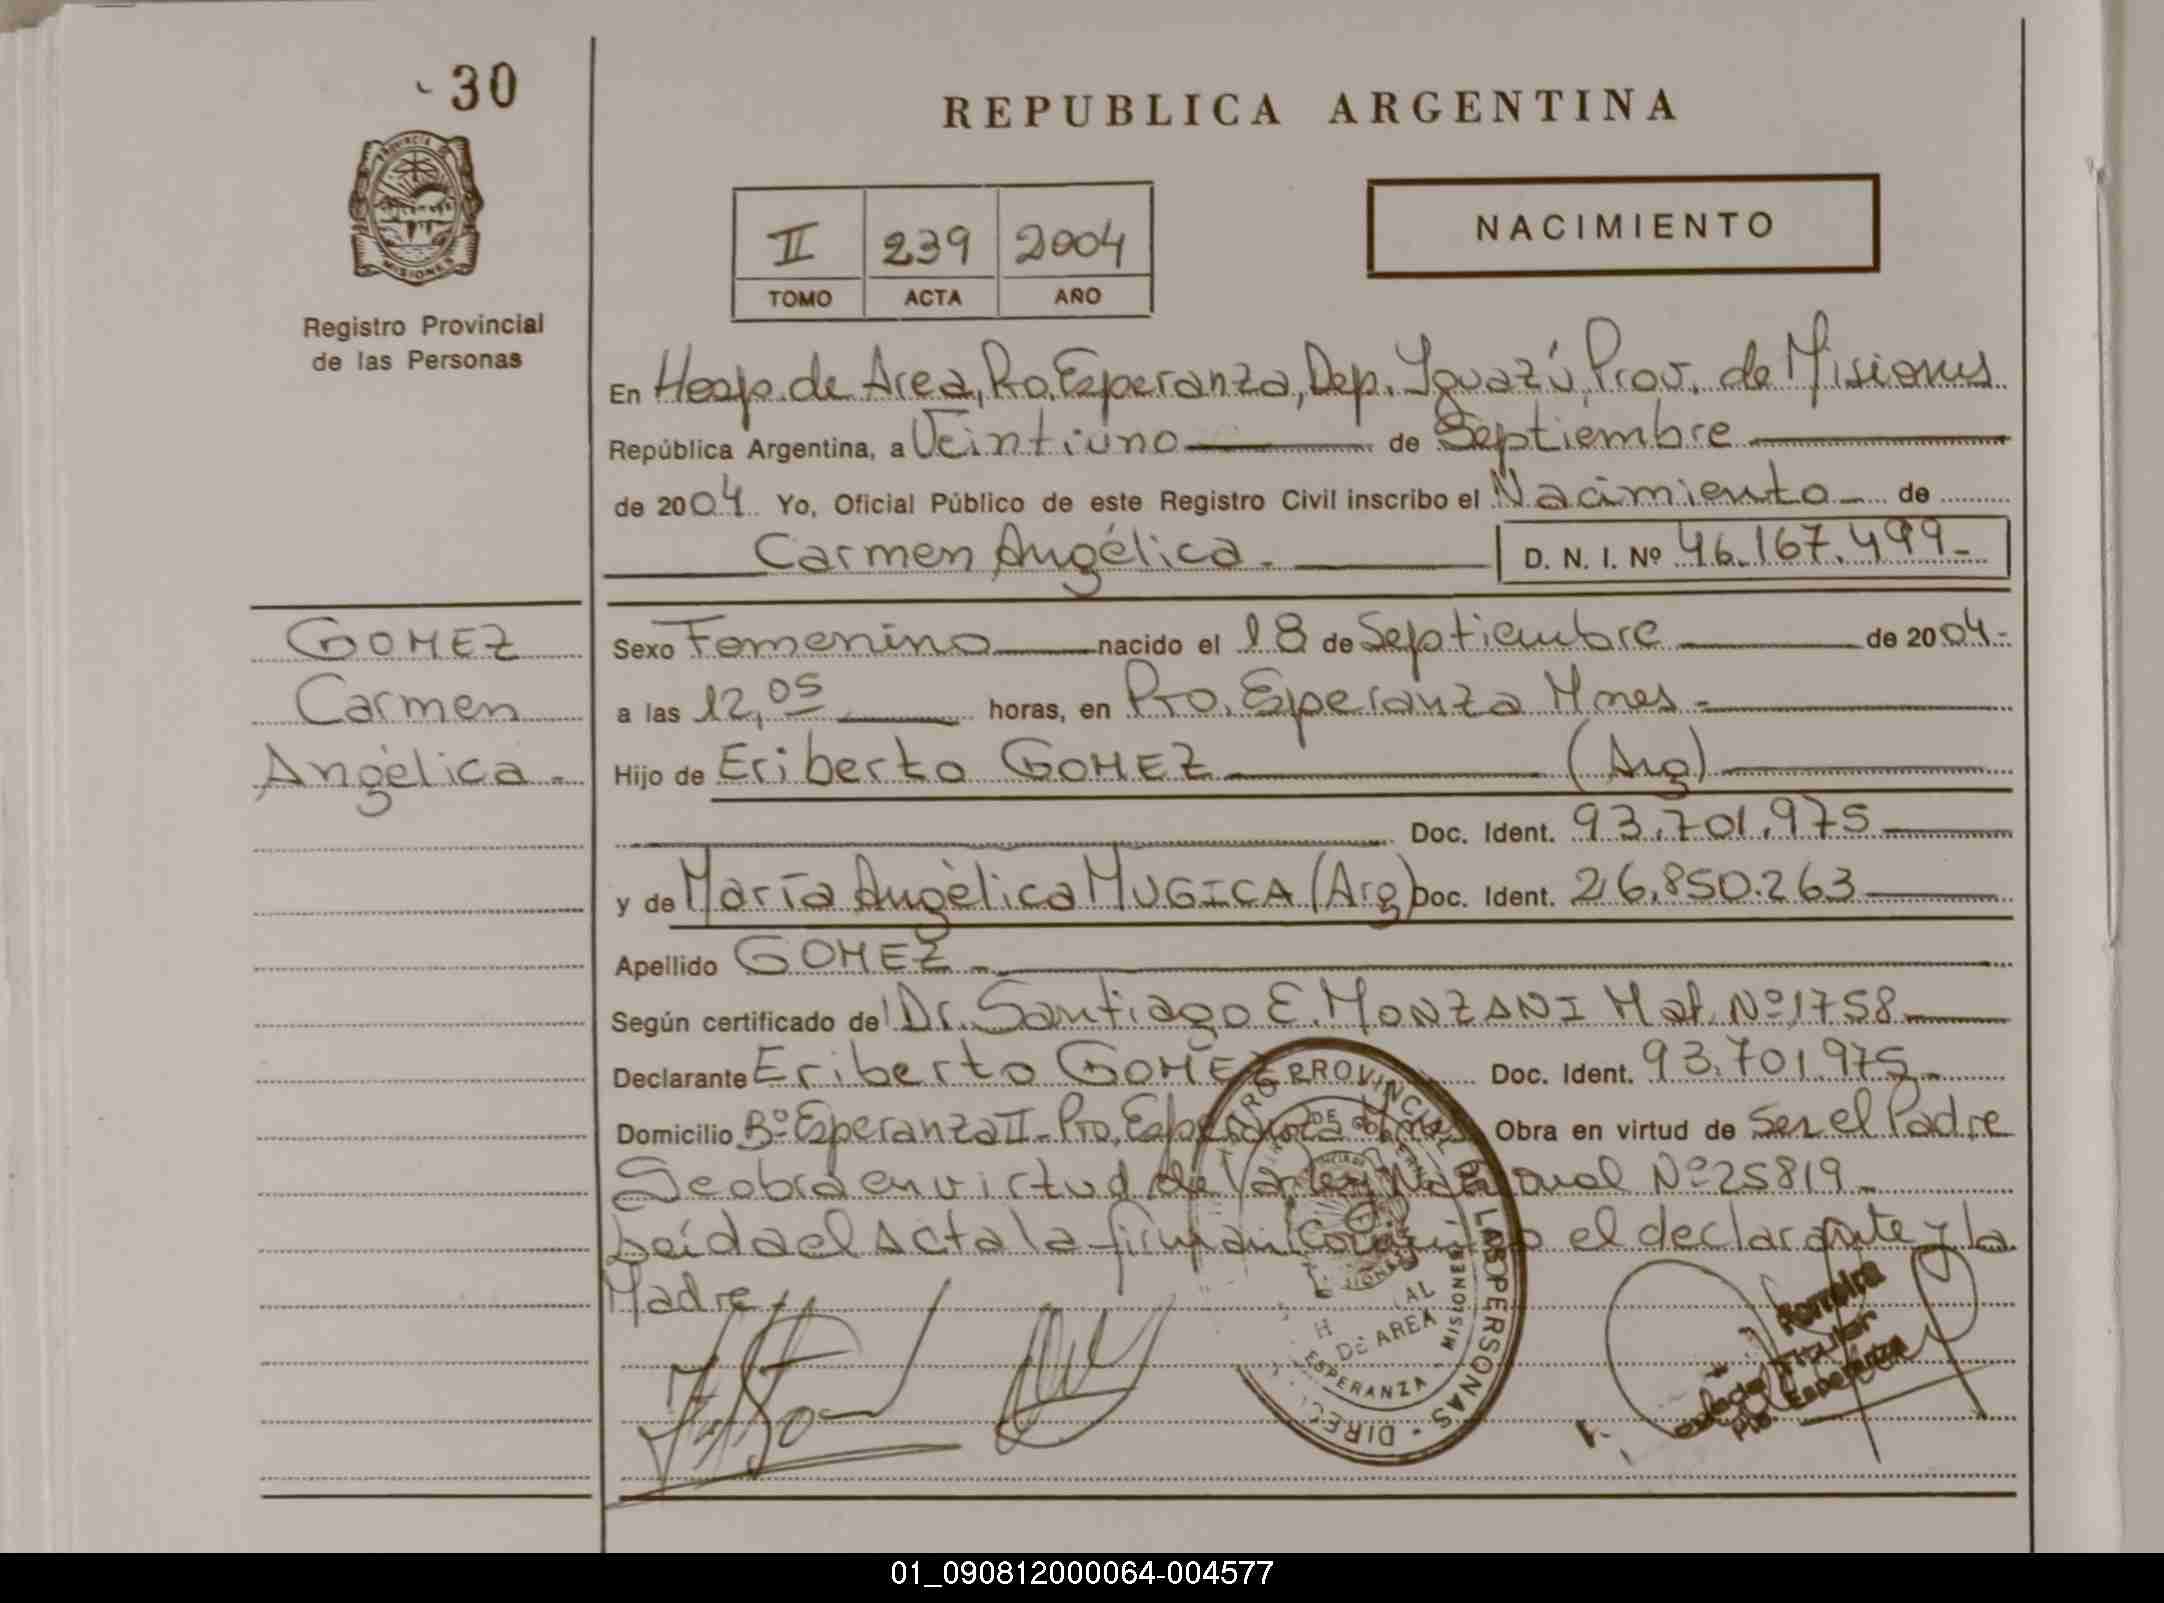 30
PROVINCIA DE
MISIONES
Registro Provincial
de las Personas
REPUBLICA ARGENTINA
II 239 2004
TOMO ACTA AÑO
NACIMIENTO
En Hosp. de Area, Pto. Esperanza, Dep. Iguazú, Prov. de Misiones
República Argentina, a Veintiuno de Septiembre
de 2004 Yo, Oficial Público de este Registro Civil inscribo el Nacimiento de
Carmen Angélica. D. N. I. Nº 46.167.499-
GOMEZ
Carmen
Angélica.-
Sexo Femenino nacido el 18 de Septiembre de 2004.-
a las 12,05 horas, en Pto. Esperanza Mnes.-
Hijo de Eriberto GOMEZ (Arg)
Doc. Ident. 93.701.975
y de María Angélica MUGICA (Arg) Doc. Ident. 26.850.263
Apellido GOMEZ.-
Según certificado de Dr. Santiago E. MONZANI Mat. Nº 1758
Declarante Eriberto GOMEZ Doc. Ident. 93.701.975.-
Domicilio Bº Esperanza II - Pto. Esperanza Mnes. Obra en virtud de Ser el Padre
Se obra en virtud de la Ley Nacional Nº 25819.-
Leída el Acta la firman conmigo el declarante y la
Madre.
PROVINCIAL DE LAS PERSONAS
MISIONES
DE AREA
ESPERANZA
Ferreira
Titular
Pto. Esperanza
01_090812000064-004577